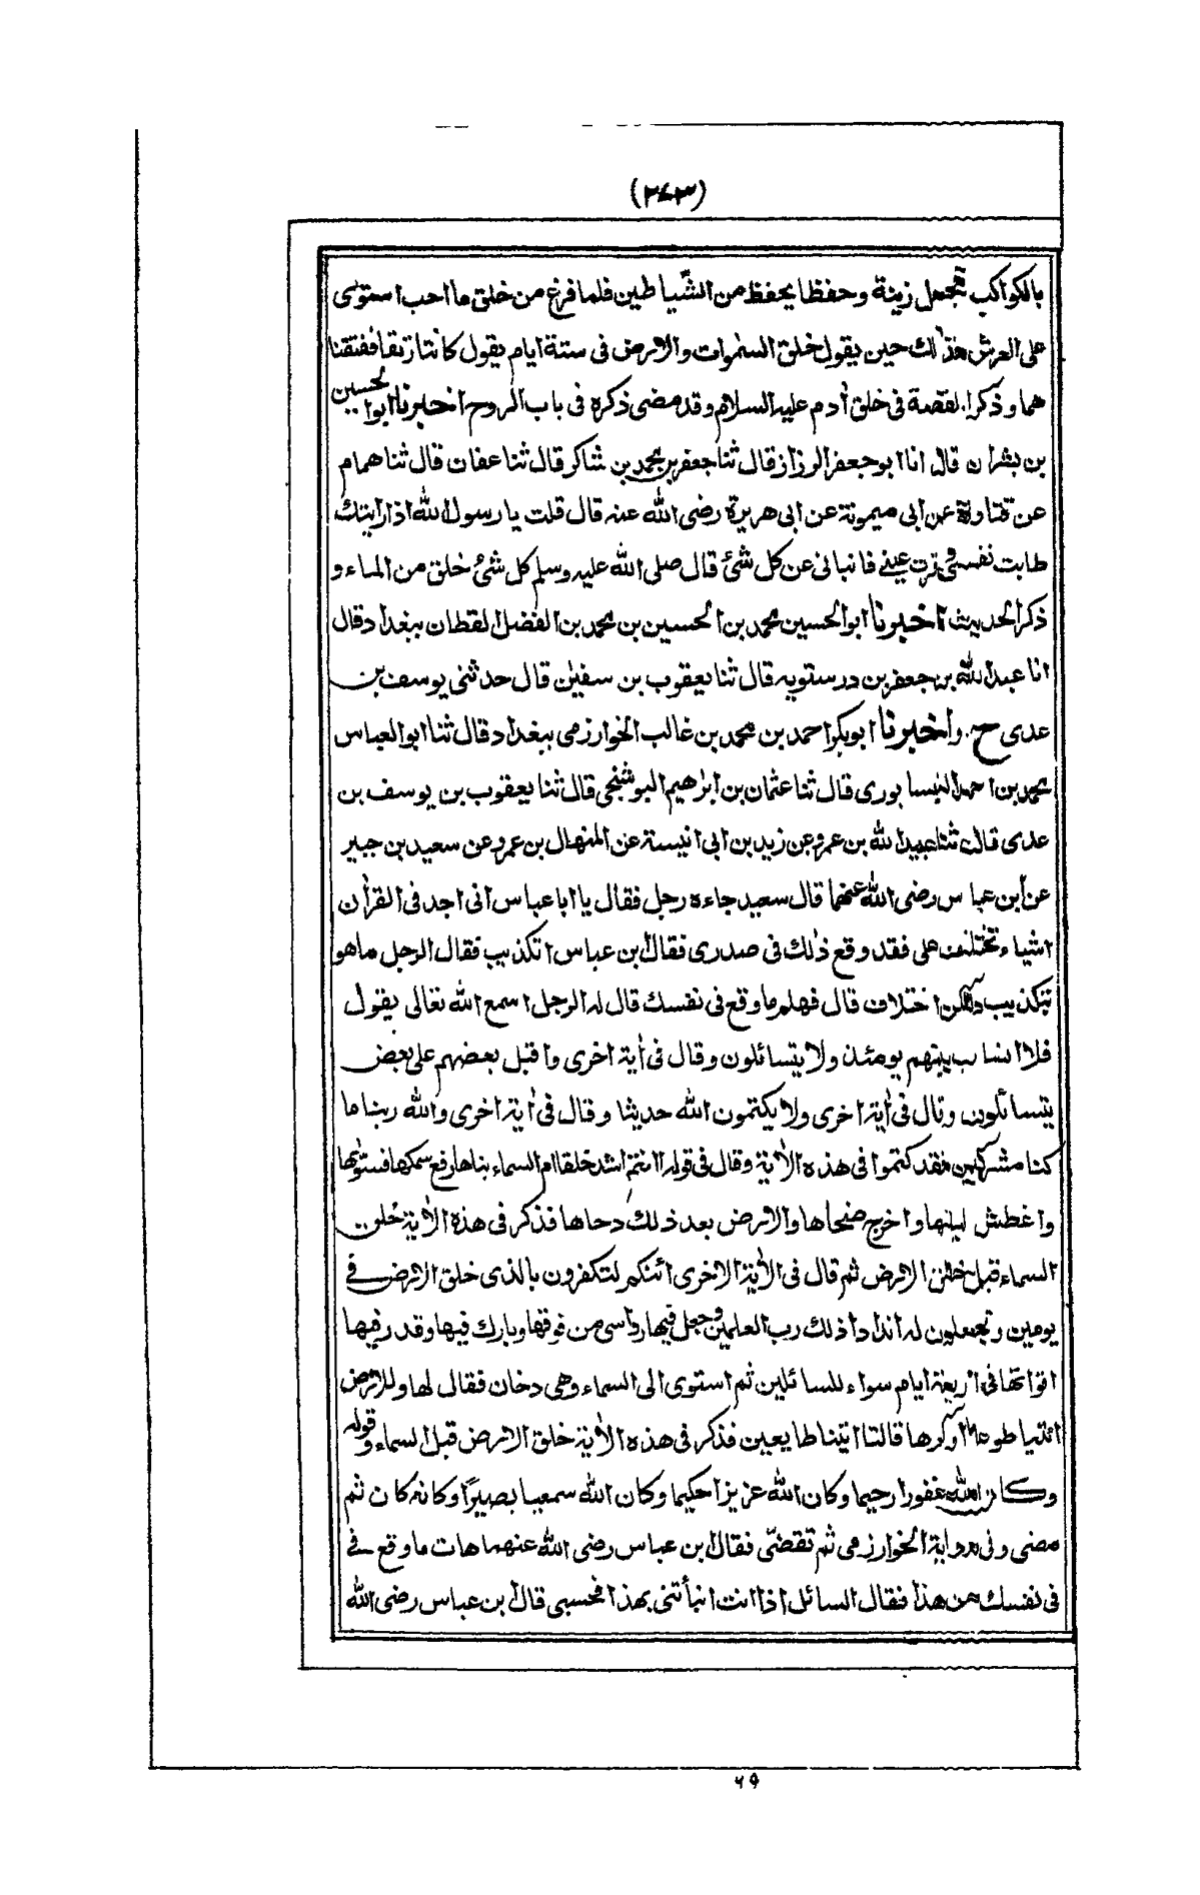 (٢٧٣)
بالكواكب فجعل زينة وحفظا يحفظ من الشياطين فلما فرغ من خلق ما احب استوى
على العرش فذلك حين يقول خلق السموات والارض فى ستة ايام يقول كانتا رتقا ففتقنا
هما وذكر القصة فى خلق أدم عليه السلام وقد مضى ذكره فى باب الروح اخبرنا ابو الحسين
بن بشران قال انا ابو جعفر الرزاز قال ثنا جعفر بن محمد بن شاكر قال ثنا عفان قال ثنا همام
عن قتادة عن ابى ميمونة عن ابى هريرة رضى الله عنه قال قلت يا رسول الله اذا رايتك
طابت نفسى وقرت عينى فانبانى عن كل شئ قال صلى الله عليه وسلم كل شئ خلق من الماء و
ذكر الحديث اخبرنا ابو الحسين محمد بن الحسين بن محمد بن الفضل القطان ببغداد قال
انا عبد الله بن جعفر بن درستويه قال ثنا يعقوب بن سفين قال حدثنى يوسف بن
عدى ح. واخبرنا ابوبكر احمد بن محمد بن غالب الخوارزمى ببغداد قال ثنا ابو العباس
محمد بن احمد النيسابورى قال ثنا عثمان بن ابرٰهيم البوشنجى قال ثنا يعقوب بن يوسف بن
عدى قال ثنا عبيد الله بن عمرو عن زيد بن ابى انيسة عن المنهال بن عمرو عن سعيد بن جبير
عن ابن عباس رضى الله عنهما قال سعيد جاءه رجل فقال يا ابا عباس انى اجد فى القرأن
اشياء تختلف على فقد وقع ذلك فى صدرى فقال ابن عباس اتكذيب فقال الرجل ماهو
بتكذيب ولكن اختلاف قال فهلم ما وقع فى نفسك قال له الرجل اسمع الله تعالى يقول
فلا انساب بينهم يومئذ ولا يتسائلون وقال فى أية اخرى واقبل بعضهم على بعض
يتسائلون وقال فى أية اخرى ولا يكتمون الله حديثا وقال فى أية اخرى والله ربنا ما
كنا مشركين فقد كتموا فى هذه الأية وقال فى قوله اانتم اشد خلقا ام السماء بناها رفع سمكها فسوٰها
واغطش ليلها واخرج ضحاها والارض بعد ذلك دحاها فذكر فى هذه الأية خلق
السماء قبل خلق الارض ثم قال فى الأية الاخرى ائنكم لتكفرون بالذى خلق الارض فى
يومين وتجعلون له اندادا ذلك رب العلمين وجعل فيها رواسى من فوقها وبارك فيها وقدر فيها
اقواتها فى اربعة ايام سواء للسائلين ثم استوى الى السماء وهى دخان فقال لها وللارض
ائتيا طوعا اوكرها قالتا اتينا طايعين فذكر فى هذه الأية خلق الارض قبل السماء وقوله
وكان الله غفورا رحيما وكان الله عزيزا حكيما وكان الله سميعا بصيرًا وكانه كان ثم
مضى وفى رواية الخوارزمى ثم تقضّى فقال ابن عباس رضى الله عنهما هات ما وقع فى
فى نفسك من هذا فقال السائل اذا انت انبأتنى بهذا فحسبى قال ابن عباس رضى الله
٦٩